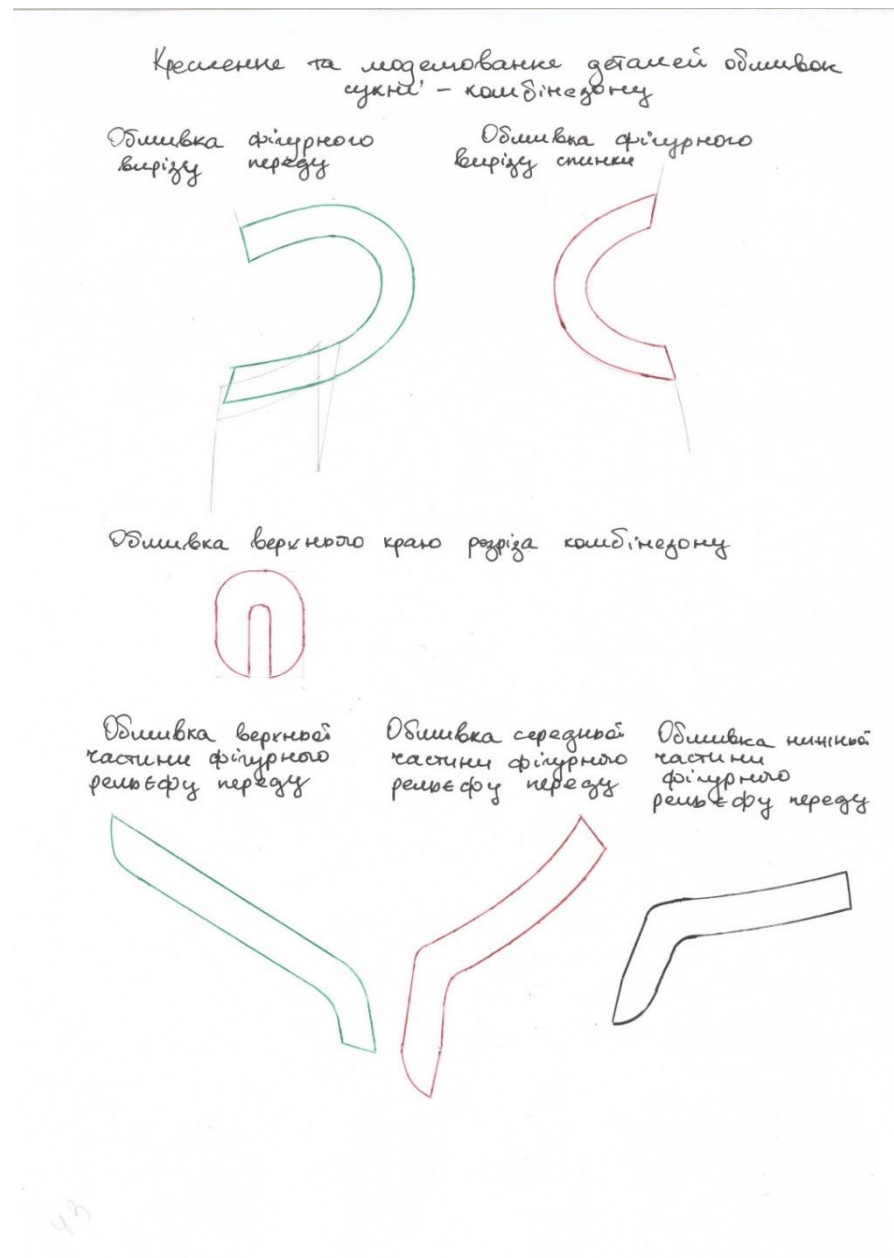 Креслення та моделювання деталей обшивок
сукні - комбінезону
Обшивка фігурного
вирізу переду
Обшивка фігурного
вирізу спинки
Обшивка верхнього краю розріза комбінезону
Обшивка верхньої
частини фігурного
рельєфу переду
Обшивка середньої
частини фігурного
рельєфу переду
Обшивка нижньої
частини
фігурного
рельєфу переду
43